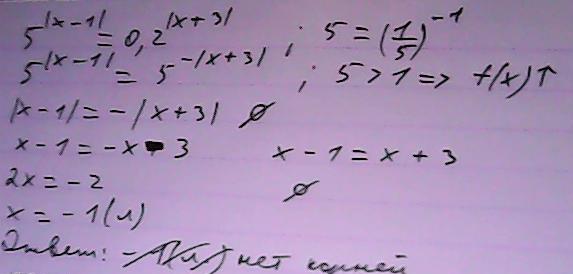 5^|x-1| = 0,2^|x+3| ; 5 = (1/5)^-1
5^|x-1| = 5^-|x+3| ; 5 > 1 => f(x)↑
|x-1| = -|x+3| ∅
x - 1 = -x - 3 x - 1 = x + 3
2x = -2 ∅
x = -1 (л)
Ответ: нет корней